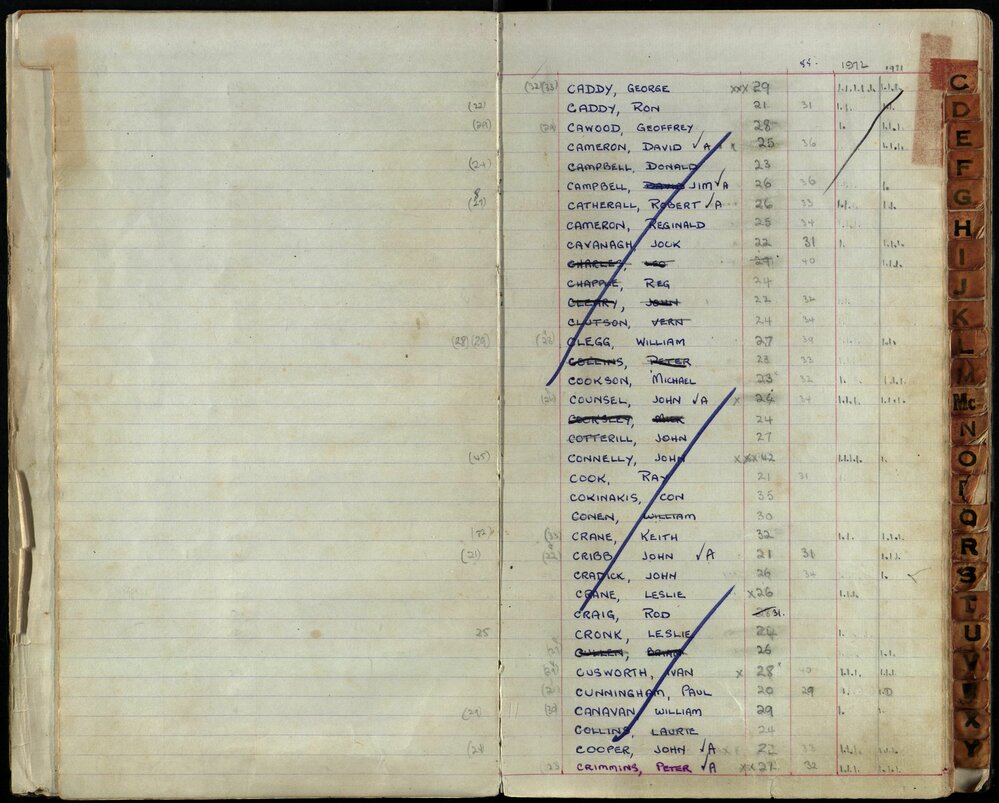 44. 1972 1971
(32)(33) CADDY, GEORGE xxx 29
(22) CADDY, RON 21 31
(29) CAWOOD, GEOFFREY 28
CAMERON, DAVID √A x 25 36
(24) CAMPBELL, DONALD 23
CAMPBELL, DAVID JIM √A 26 36
CATHERALL, ROBERT √A 26 33
CAMERON, REGINALD 25 34
CAVANAGH, JOCK 22 31
CHARLES, LEO 27 40
CHAPPLE, REG 24
CLEARY, JOHN 22 32
CLUTSON, VERN 24 34
(28)(29) CLEGG, WILLIAM 27 39
COLLINS, PETER 23 33
COOKSON, MICHAEL 23 32
COUNSEL, JOHN √A x 26 34
COCKSLEY, MICK 24
COTTERILL, JOHN 27
(45) CONNELLY, JOHN xxx 42
COOK, RAY 21 31
COKINAKIS, CON 35
CONEN, WILLIAM 30
CRANE, KEITH 32
(21) CRIBB, JOHN √A 21 31
CRADICK, JOHN 26 34
CRANE, LESLIE x 26
CRAIG, ROD 31.
25 CRONK, LESLIE 26
CULLEN, BRIAN 26
CUSWORTH, IVAN x 28 40
CUNNINGHAM, PAUL 20 29
(29) CANAVAN, WILLIAM 29
COLLINS, LAURIE 24
(24) COOPER, JOHN √A 22 33
(23) CRIMMINS, PETER √A xx 22 32
C
D
E
F
G
H
I
J
K
L
M
Mc
N
O
P
Q
R
S
T
U
V
X
Y